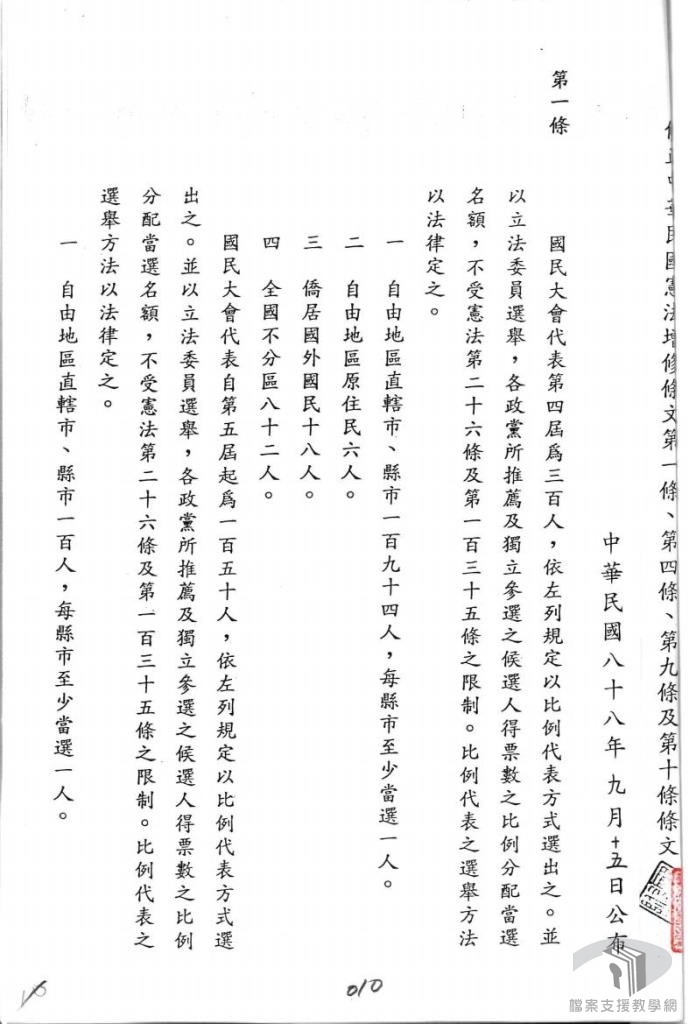 修正中華民國憲法增修條文第一條、第四條、第九條及第十條條文
中華民國八十八年九月十五日公布
第一條
國民大會代表第四屆爲三百人，依左列規定以比例代表方式選出之。並
以立法委員選舉，各政黨所推薦及獨立參選之候選人得票數之比例分配當選
名額，不受憲法第二十六條及第一百三十五條之限制。比例代表之選舉方法
以法律定之。
一　自由地區直轄市、縣市一百九十四人，每縣市至少當選一人。
二　自由地區原住民六人。
三　僑居國外國民十八人。
四　全國不分區八十二人。
國民大會代表自第五屆起爲一百五十人，依左列規定以比例代表方式選
出之。並以立法委員選舉，各政黨所推薦及獨立參選之候選人得票數之比例
分配當選名額，不受憲法第二十六條及第一百三十五條之限制。比例代表之
選舉方法以法律定之。
一　自由地區直轄市、縣市一百人，每縣市至少當選一人。
010
檔案支援教學網